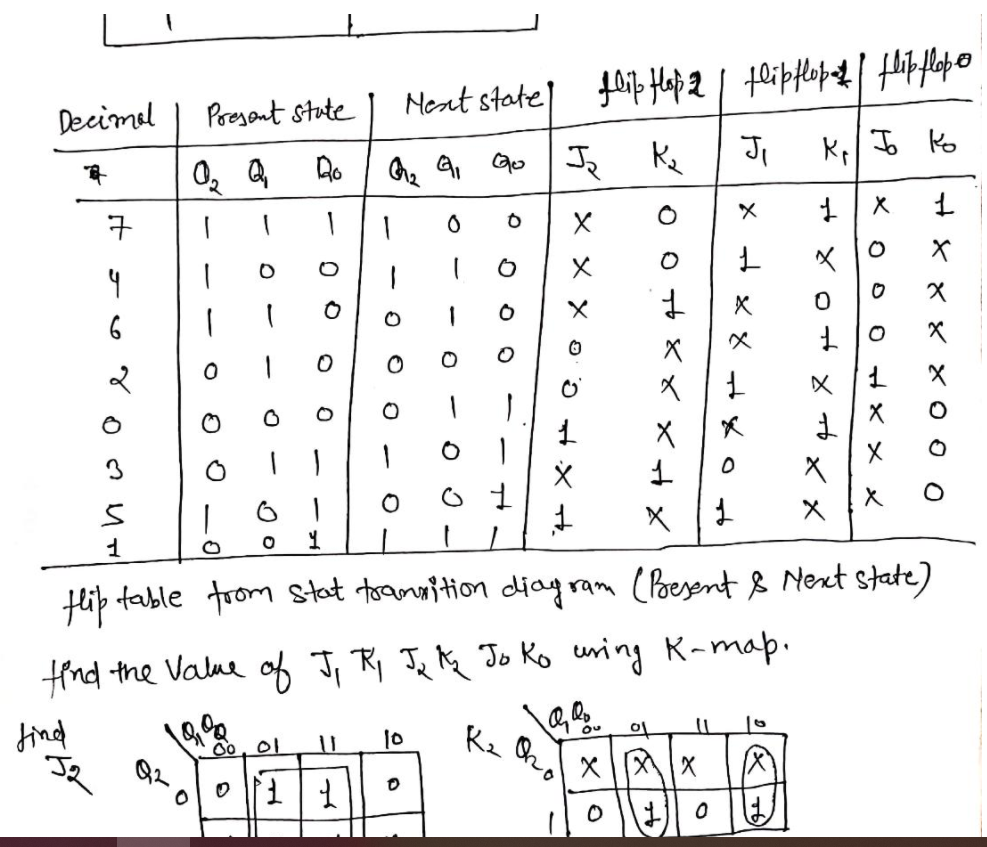 Decimal Present state Next state flip flop 2 flipflop-1 flipflop 0
Q2 Q1 Q0 Q2 Q1 Q0 J2 K2 J1 K1 J0 K0
7 1 1 1 1 0 0 X 0 X 1 X 1
4 1 0 0 1 1 0 X 0 1 X 0 X
6 1 1 0 0 1 0 X 1 X 0 0 X
2 0 1 0 0 0 0 0 X X 1 0 X
0 0 0 0 0 1 1 0 X 1 X 1 X
3 0 1 1 1 0 1 1 X X 1 X 0
5 1 0 1 0 0 1 X 1 0 X X 0
1 0 0 1 1 1 1 1 X 1 X X 0
flip table from stat transition diagram (Present & Next state)
find the Value of J1 K1 J2 K2 J0 K0 using K-map.
find J2
Q1Q0
00 01 11 10
Q2
0 0 1 1 0
K2
Q1Q0
00 01 11 10
Q2
0 X X X X
1 0 1 0 1